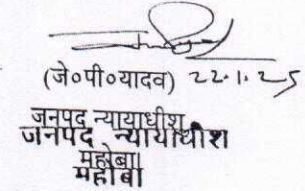 (जे०पी०यादव) 22.1.25
जनपद न्यायाधीश
जनपद न्यायाधीश
महोबा।
महोबा